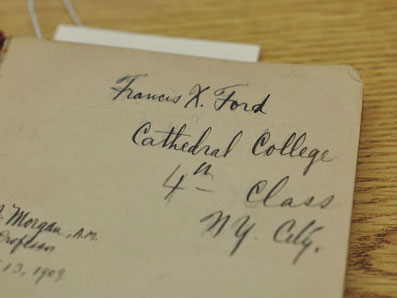 Francis X. Ford
Cathedral College
4th Class
NY. City.
Morgan, A.M.
Professor
13, 1909.